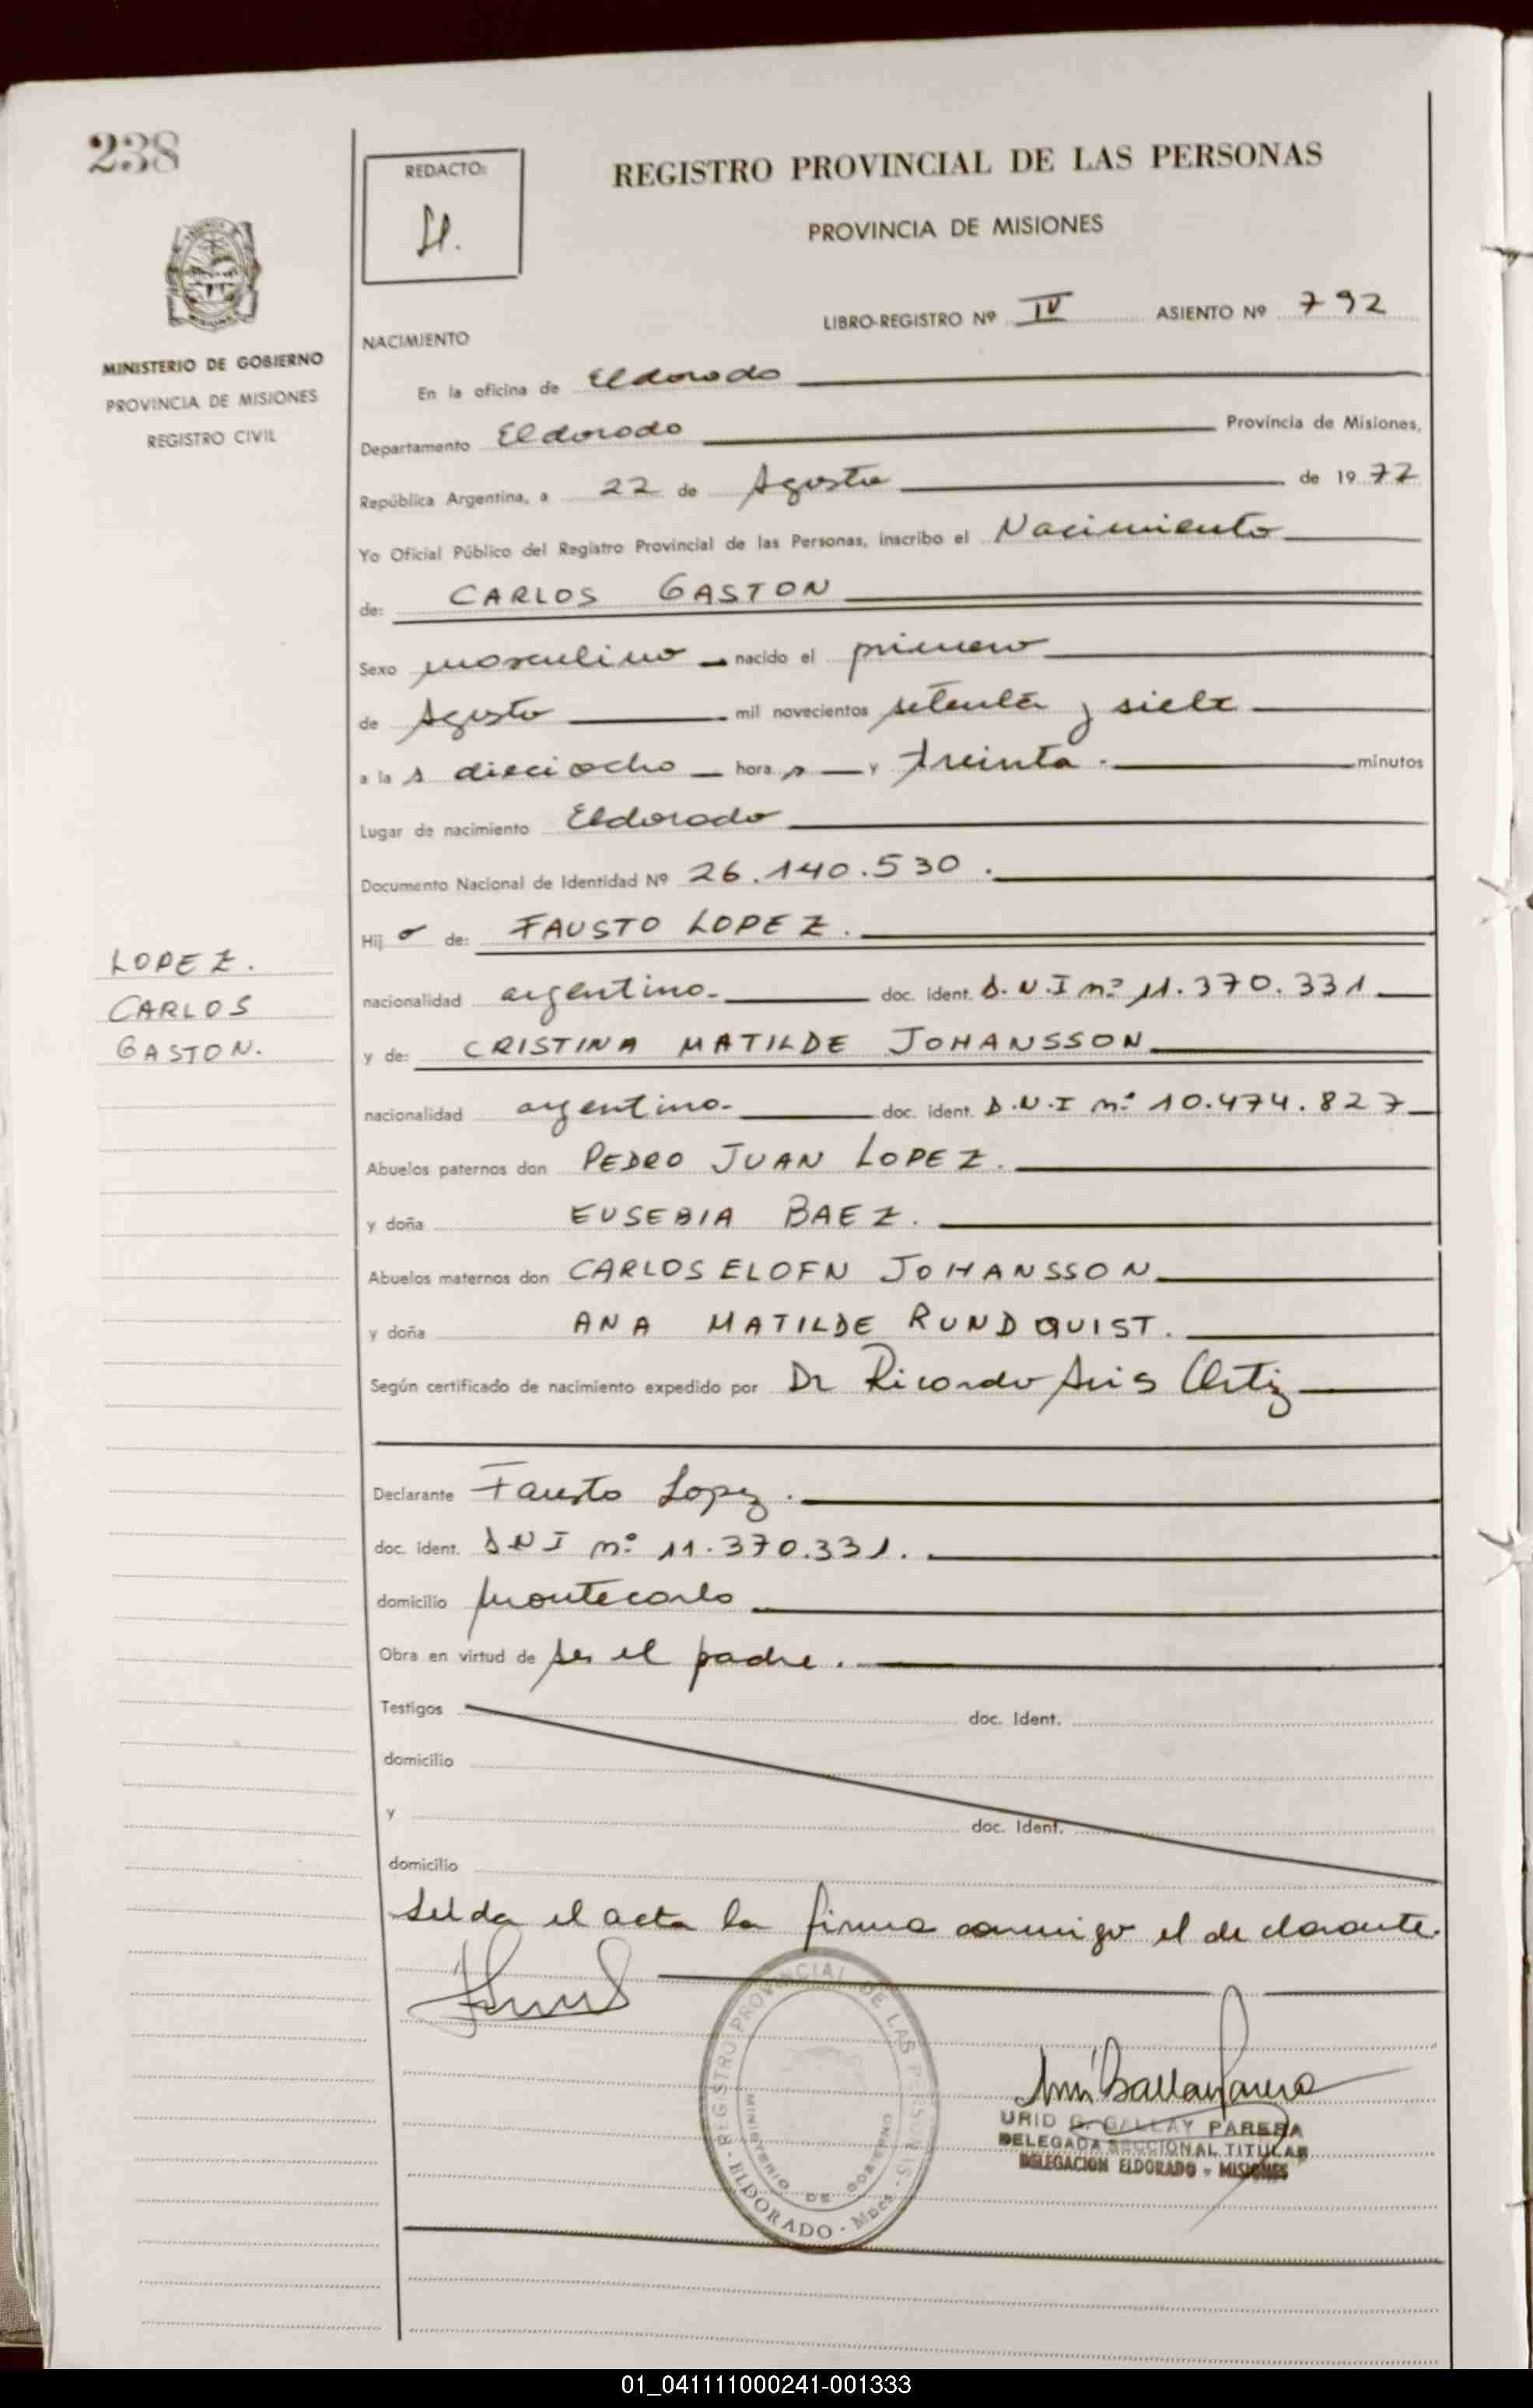 238
REDACTO:
REGISTRO PROVINCIAL DE LAS PERSONAS
PROVINCIA DE MISIONES
MINISTERIO DE GOBIERNO
PROVINCIA DE MISIONES
REGISTRO CIVIL
LIBRO-REGISTRO Nº IV ASIENTO Nº 792
NACIMIENTO
En la oficina de Eldorado
Departamento Eldorado Provincia de Misiones,
República Argentina, a 22 de Agosto de 1977
Yo Oficial Público del Registro Provincial de las Personas, inscribo el Nacimiento
de: CARLOS GASTON
Sexo masculino nacido el primero
de Agosto mil novecientos setenta y siete
a la s dieciocho hora s y treinta. minutos
Lugar de nacimiento Eldorado
Documento Nacional de Identidad Nº 26.140.530.
Hij o de: FAUSTO LOPEZ.
LOPEZ.
CARLOS
GASTON.
nacionalidad argentino- doc. ident. D.N.I nº 11.370.331
y de: CRISTINA MATILDE JOHANSSON
nacionalidad argentina- doc. ident. D.N.I nº 10.474.827
Abuelos paternos don PEDRO JUAN LOPEZ.
y doña EUSEBIA BAEZ.
Abuelos maternos don CARLOS ELOFN JOHANSSON
y doña ANA MATILDE RUNDQUIST.
Según certificado de nacimiento expedido por Dr Ricardo Ortiz
Declarante Fausto Lopez.
doc. ident. D.N.I nº 11.370.331.
domicilio Montecarlo
Obra en virtud de ser el padre.
Testigos doc. Ident.
domicilio
y doc. Ident.
domicilio
Leida el acta la firma conmigo el declarante.
REGISTRO PROVINCIAL DE LAS PERSONAS
MINISTERIO DE GOBIERNO
ELDORADO - Mnes.
URID G. GALLAY PARERA
DELEGADA SECCIONAL TITULAR
DELEGACION ELDORADO - MISIONES
01_041111000241-001333